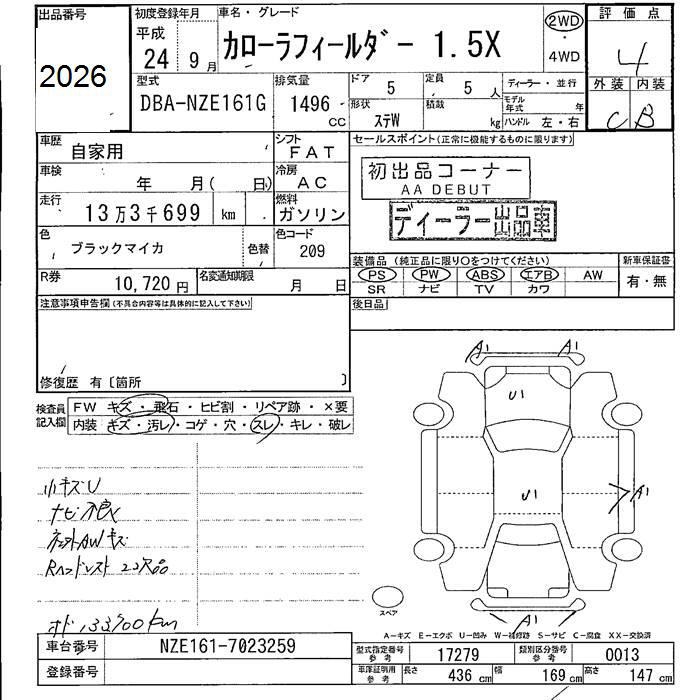 出品番号
2026
初度登録年月
平成
24 9 月
車名・グレード
カローラフィールダー 1.5X
2WD
4WD
評価点
4
外装 内装
C B
型式
DBA-NZE161G
排気量
1496 CC
ドア
5
定員
5 人
形状
ステW
積載
kg
ディーラー・並行
モデル年式 年
ハンドル 左・右
車歴
自家用
シフト
FAT
車検
年 月( 日)
冷房
AC
走行
13万3千699 km
燃料
ガソリン
色
ブラックマイカ
色替
色コード
209
R券
10,720円
名変通知期限
月 日
セールスポイント(正常に機能するものに限ります)
初出品コーナー
AA DEBUT
ディーラー出品車
装備品 (純正品に限り○をつけてください)
新車保証書
PS PW ABS エアB AW
SR ナビ TV カワ
有・無
注意事項申告欄(不具合内容等は具体的に記入して下さい)
後日品
修復歴 有〔箇所 〕
検査員記入欄
FW キズ・飛石・ヒビ割・リペア跡・×要
内装 キズ・汚レ・コゲ・穴・スレ・キレ・破レ
小キズU
ナビ不良X
AWキズ
オド133700km
A1 A1
U1
U1
A1
A1 A1
スペア
A-キズ E-エクボ U-凹み W-補修跡 S-サビ C-腐食 XX-交換済
車台番号
NZE161-7023259
登録番号
型式指定番号
参考
17279
類別区分番号
参考
0013
車庫証明用
参考
長さ 436 cm
幅 169 cm
高さ 147 cm